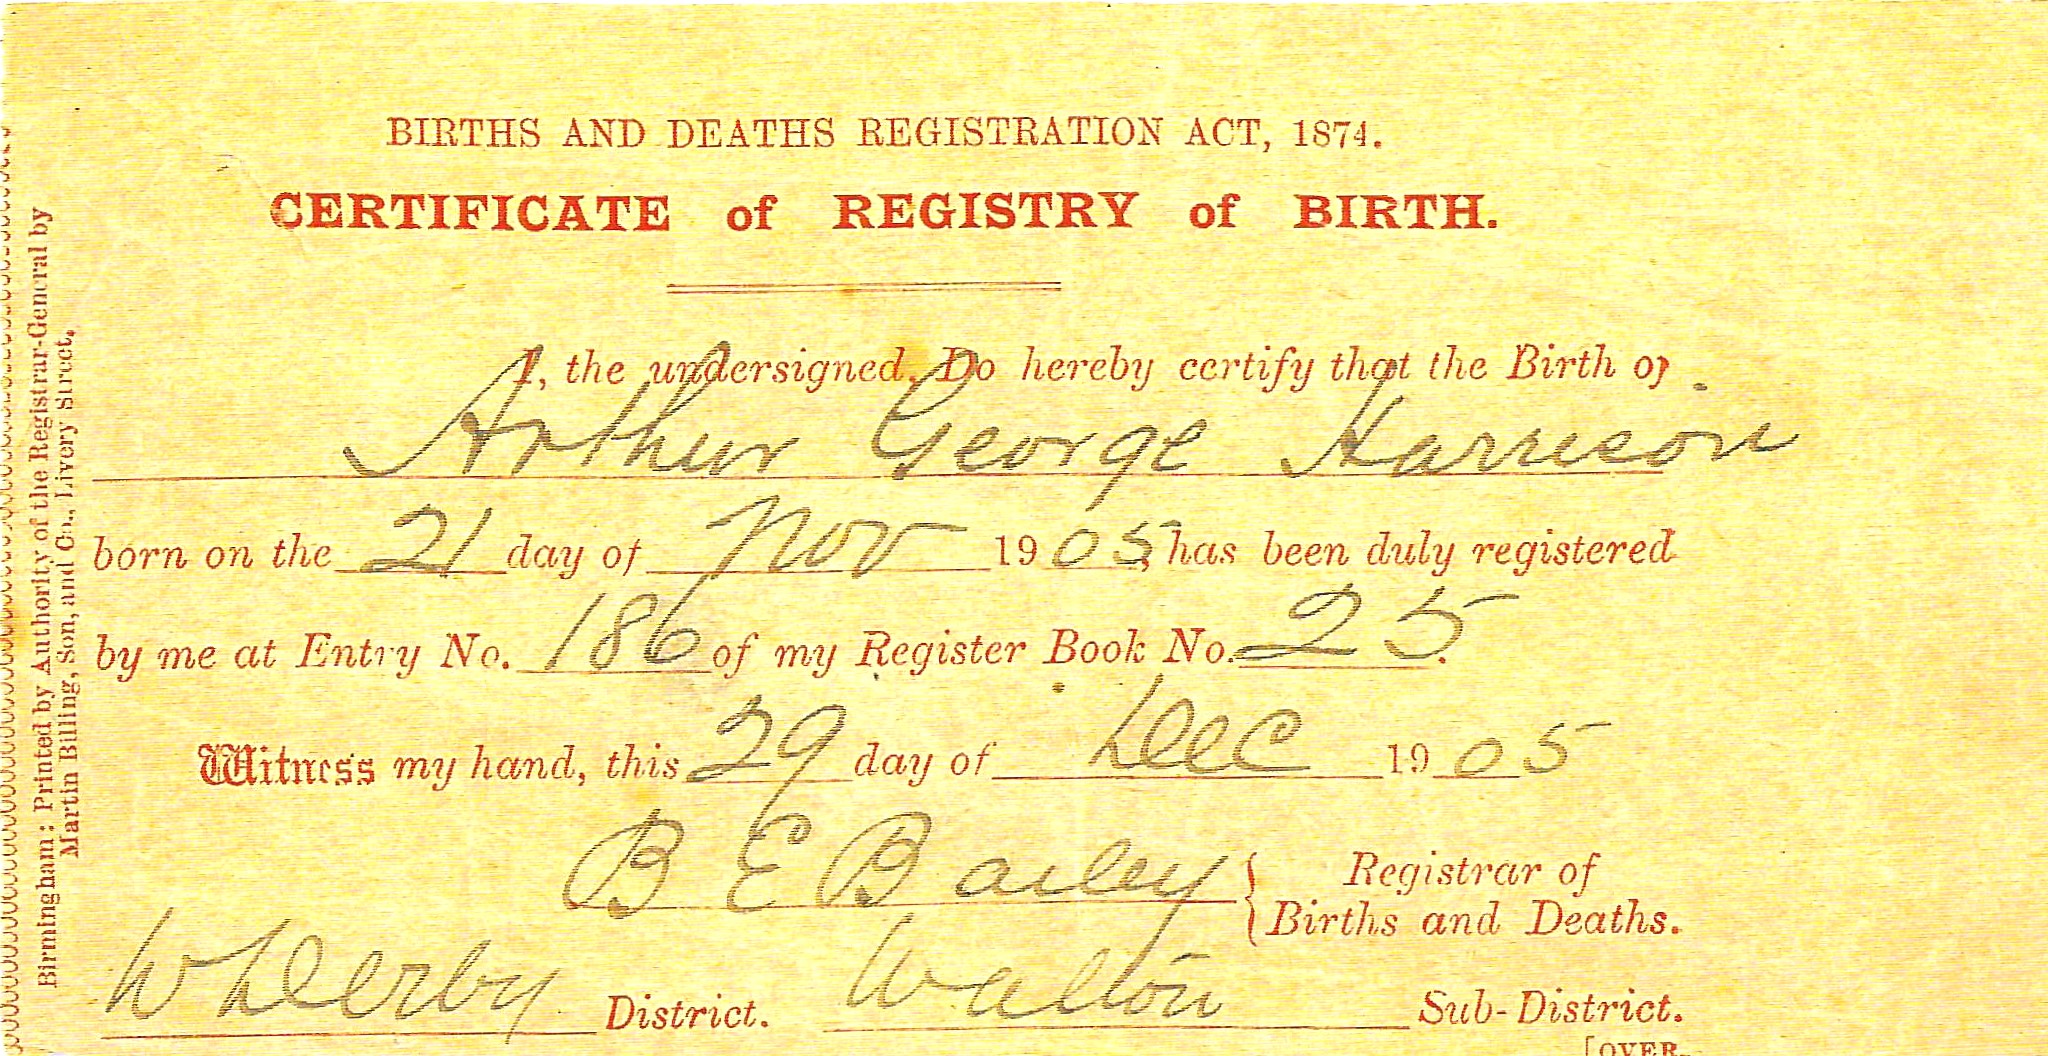 BIRTHS AND DEATHS REGISTRATION ACT, 1874.
CERTIFICATE of REGISTRY of BIRTH.
I, the undersigned, Do hereby certify that the Birth of
Arthur George Harrison
born on the 21 day of Nov 1905, has been duly registered
by me at Entry No. 186 of my Register Book No. 25.
Witness my hand, this 29 day of Dec 1905
B E Bailey { Registrar of
Births and Deaths.
W Derby District. Walton Sub-District.
[OVER.
Birmingham: Printed by Authority of the Registrar-General by
Martin Billing, Son, and Co., Livery Street.